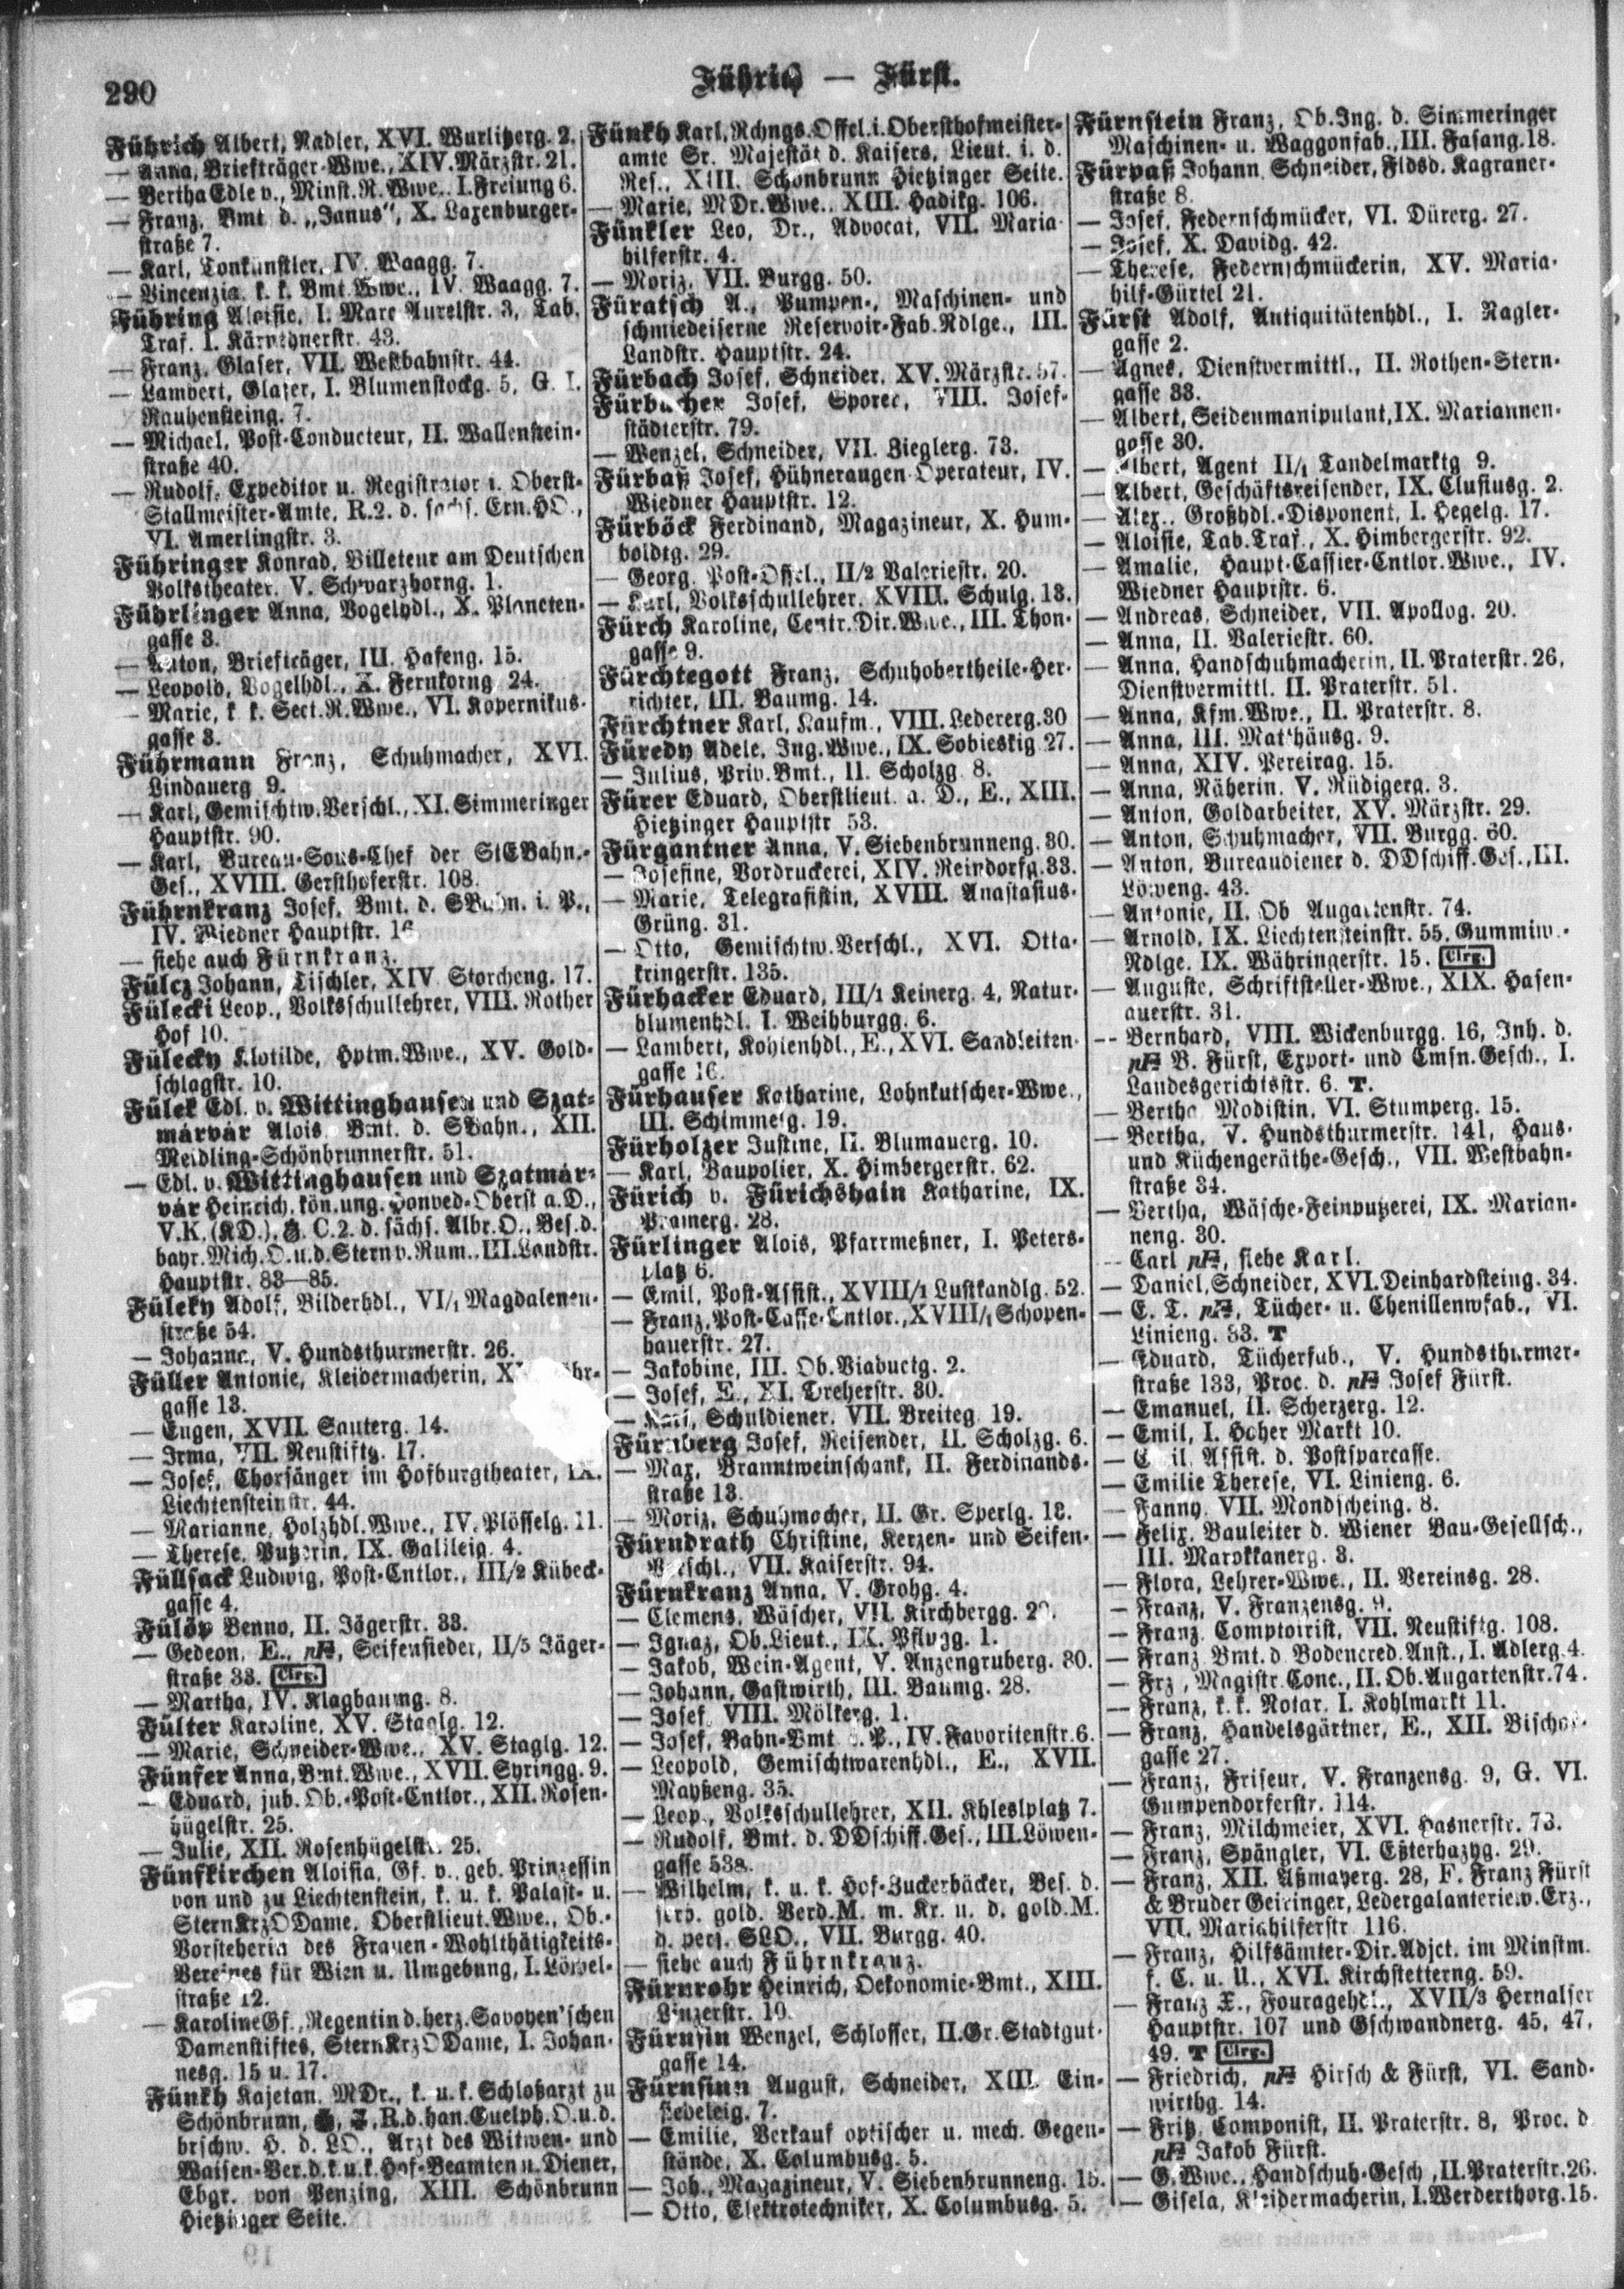 290
Führich — Fürst.
Führich Albert, Nadler, XVI. Wurlitzerg. 2.
— Anna, Briefträger-Wwe., XIV. Märzstr. 21.
— Bertha Edle v., Minst.R.Wwe., I. Freiung 6.
— Franz, Bmt. d. „Janus“, X. Laxenburger-
straße 7.
— Karl, Tonkünstler, IV. Waagg. 7.
— Vincenzia, k. k. Bmt.Wwe., IV. Waagg. 7.
Führing Aloisie, I. Marc Aurelstr. 3, Tab.
Traf. I. Kärnthnerstr. 43.
— Franz, Glaser, VII. Westbahnstr. 44.
— Lambert, Glaser, I. Blumenstockg. 5, G. I.
Rauhensteing. 7.
— Michael, Post-Conducteur, II. Wallenstein-
straße 40.
— Rudolf, Expeditor u. Registrator i. Oberst-
Stallmeister-Amte, R.2. d. sachs. Ern.HO.,
VI. Amerlingstr. 3.
Führinger Konrad, Billeteur am Deutschen
Volkstheater, V. Schwarzhorng. 1.
Führlinger Anna, Vogelhdl., X. Planeten-
gasse 3.
— Anton, Briefträger, III. Hafeng. 15.
— Leopold, Vogelhdl., X. Fernkorng. 24.
— Marie, k. k. Sect.R.Wwe., VI. Kopernikus-
gasse 3.
Führmann Franz, Schuhmacher, XVI.
Lindauerg. 9.
— Karl, Gemischtw.Verschl., XI. Simmeringer
Hauptstr. 90.
— Karl, Bureau-Sous-Chef der StEBahn.-
Ges., XVIII. Gersthoferstr. 108.
Führnkranz Josef, Bmt. d. SBahn. i. P.,
IV. Wiedner Hauptstr. 16
— siehe auch Fürnkranz.
Fülcz Johann, Tischler, XIV. Storcheng. 17.
Fülecki Leop., Volksschullehrer, VIII. Rother
Hof 10.
Fülecky Klotilde, Hptm.Wwe., XV. Gold-
schlagstr. 10.
Fülek Edl. v. Wittinghausen und Szat-
márvár Alois, Bmt. d. SBahn., XII.
Meidling-Schönbrunnerstr. 51.
— Edl. v. Wittinghausen und Szatmár-
vár Heinrich, kön.ung. Honved-Oberst a.D.,
V.K.(KD.), C.2. d. sächs. Albr.O., Bes.d.
bayr.Mich.O.u.d.Stern v.Rum., III. Landstr.
Hauptstr. 83—85.
Füleky Adolf, Bilderhdl., VI/1 Magdalenen-
straße 54.
— Johanna, V. Hundsthurmerstr. 26.
Füller Antonie, Kleidermacherin,
gasse 13.
— Eugen, XVII. Sauterg. 14.
— Irma, VII. Neustiftg. 17.
— Josef, Chorsänger im Hofburgtheater, IX.
Liechtensteinstr. 44.
— Marianne, Holzhdl.Wwe., IV. Plösselg. 11.
— Therese, Putzerin, IX. Galileig. 4.
Füllsack Ludwig, Post-Cntlor., III/2 Kübeck-
gasse 4.
Fülöp Benno, II. Jägerstr. 33.
— Gedeon, E., pH, Seifensieder, II/5 Jäger-
straße 33. Clrg.
— Martha, IV. Klagbaumg. 8.
Fülter Karoline, XV. Staglg. 12.
— Marie, Schneider-Wwe., XV. Staglg. 12.
Fünfer Anna, Bmt.Wwe., XVII. Syringg. 9.
— Eduard, jub. Ob.-Post-Cntlor., XII. Rosen-
hügelstr. 25.
— Julie, XII. Rosenhügelstr. 25.
Fünfkirchen Aloisia, Gf. v., geb. Prinzessin
von und zu Liechtenstein, k. u. k. Palast- u.
SternKrzODame, Oberstlieut.Wwe., Ob.-
Vorsteherin des Frauen-Wohlthätigkeits-
Vereines für Wien u. Umgebung, I. Löwel-
straße 12.
— Karoline Gf., Regentin d.herz. Savoyen'schen
Damenstiftes, SternKrzODame, I. Johan-
nesg. 15 u. 17.
Fünkh Kajetan, MDr., k. u. k. Schloßarzt zu
Schönbrunn, R.d.han.Guelph.O.u.d.
brschw. H. d. LO., Arzt des Witwen- und
Waisen-Ver.d.k.u.k.Hof-Beamten u. Diener,
Ebgr. von Penzing, XIII. Schönbrunn
Hietzinger Seite.
Fünkh Karl, Rchngs.Offcl.i.Obersthofmeister-
amte Sr. Majestät d. Kaisers, Lieut. i. d.
Res., XIII. Schönbrunn Hietzinger Seite.
— Marie, MDr.Wwe., XIII. Hadikg. 106.
Fünkler Leo, Dr., Advocat, VII. Maria-
hilferstr. 4.
— Moriz, VII. Burgg. 50.
Füratsch A., Pumpen-, Maschinen- und
schmiedeiserne Reservoir-Fab.Ndlge., III.
Landstr. Hauptstr. 24.
Fürbach Josef, Schneider, XV. Märzstr. 57.
Fürbacher Josef, Sporer, VIII. Josef-
städterstr. 79.
— Wenzel, Schneider, VII. Zieglerg. 73.
Fürbaß Josef, Hühneraugen-Operateur, IV.
Wiedner Hauptstr. 12.
Fürböck Ferdinand, Magazineur, X. Hum-
boldtg. 29.
— Georg, Post-Offcl., II/2 Valeriestr. 20.
— Karl, Volksschullehrer, XVIII. Schulg. 13.
Fürch Karoline, Centr.Dir.Wwe., III. Thon-
gasse 9.
Fürchtegott Franz, Schuhobertheile-Her-
richter, III. Baumg. 14.
Fürchtner Karl, Kaufm., VIII. Ledererg. 30
Füredy Adele, Ing.Wwe., IX. Sobieskig. 27.
— Julius, Priv.Bmt., II. Scholzg. 8.
Fürer Eduard, Oberstlieut. a. D., E., XIII.
Hietzinger Hauptstr. 53.
Fürgantner Anna, V. Siebenbrunneng. 30.
— Josefine, Vordruckerei, XIV. Reindorfg. 33.
— Marie, Telegrafistin, XVIII. Anastasius-
Grüng. 31.
— Otto, Gemischtw.Verschl., XVI. Otta-
kringerstr. 135.
Fürhacker Eduard, III/1 Keinerg. 4, Natur-
blumenhdl. I. Weihburgg. 6.
— Lambert, Kohlenhdl., E., XVI. Sandleiten-
gasse 16.
Fürhauser Katharine, Lohnkutscher-Wwe.,
III. Schimmelg. 19.
Fürholzer Justine, II. Blumauerg. 10.
— Karl, Baupolier, X. Himbergerstr. 62.
Fürich v. Fürichshain Katharine, IX.
Pramerg. 28.
Fürlinger Alois, Pfarrmeßner, I. Peters-
platz 6.
— Emil, Post-Assist., XVIII/1 Lustkandlg. 52.
— Franz, Post-Casse-Cntlor., XVIII/1 Schopen-
hauerstr. 27.
— Jakobine, III. Ob. Viaductg. 2.
— Josef, E., XI. Dreherstr. 30.
— Karl, Schuldiener, VII. Breiteg. 19.
Fürnberg Josef, Reisender, II. Scholzg. 6.
— Max, Branntweinschank, II. Ferdinands-
straße 13.
— Moriz, Schuhmacher, II. Gr. Sperlg. 18.
Fürndrath Christine, Kerzen- und Seifen-
Verschl., VII. Kaiserstr. 94.
Fürnkranz Anna, V. Grohg. 4.
— Clemens, Wäscher, VII. Kirchbergg.
— Ignaz, Ob.Lieut., IX. Pflugg. 1.
— Jakob, Wein-Agent, V. Anzengruberg. 30.
— Johann, Gastwirth, III. Baumg. 28.
— Josef, VIII. Mölkerg. 1.
— Josef, Bahn-Bmt. i. P., IV. Favoritenstr. 6.
— Leopold, Gemischtwarenhdl., E., XVII.
Mayßeng. 35.
— Leop., Volksschullehrer, XII. Khleslplatz 7.
— Rudolf, Bmt. d. DDschiff.Ges., III. Löwen-
gasse 53a.
— Wilhelm, k. u. k. Hof-Zuckerbäcker, Bes. d.
serb. gold. Verd.M. m. Kr. u. d. gold.M.
d. pers. SLO., VII. Burgg. 40.
— siehe auch Führnkranz.
Fürnrohr Heinrich, Oekonomie-Bmt., XIII.
Linzerstr. 19.
Fürnsin Wenzel, Schlosser, II. Gr. Stadtgut-
gasse 14.
Fürnsinn August, Schneider, XIII. Ein-
siedeleig. 7.
— Emilie, Verkauf optischer u. mech. Gegen-
stände, X. Columbusg. 5.
— Joh., Magazineur, V. Siebenbrunneng. 15.
— Otto, Elektrotechniker, X. Columbusg. 5.
Fürnstein Franz, Ob.Ing. d. Simmeringer
Maschinen- u. Waggonfab., III. Fasang. 18.
Fürpaß Johann, Schneider, Fldsd. Kagraner-
straße 8.
— Josef, Federnschmücker, VI. Dürerg. 27.
— Josef, X. Davidg. 42.
— Therese, Federnschmückerin, XV. Maria-
hilf-Gürtel 21.
Fürst Adolf, Antiquitätenhdl., I. Nagler-
gasse 2.
— Agnes, Dienstvermittl., II. Rothen-Stern-
gasse 33.
— Albert, Seidenmanipulant, IX. Mariannen-
gasse 30.
— Albert, Agent II/1 Tandelmarktg 9.
— Albert, Geschäftsreisender, IX. Clusiusg. 2.
— Alex., Großhdl.-Disponent, I. Hegelg. 17.
— Aloisie, Tab.Traf., X. Himbergerstr. 92.
— Amalie, Haupt-Cassier-Cntlor.Wwe., IV.
Wiedner Hauptstr. 6.
— Andreas, Schneider, VII. Apollog. 20.
— Anna, II. Valeriestr. 60.
— Anna, Handschuhmacherin, II. Praterstr. 26,
Dienstvermittl. II. Praterstr. 51.
— Anna, Kfm.Wwe., II. Praterstr. 8.
— Anna, III. Matthäusg. 9.
— Anna, XIV. Pereirag. 15.
— Anna, Näherin, V. Rüdigerg. 3.
— Anton, Goldarbeiter, XV. Märzstr. 29.
— Anton, Schuhmacher, VII. Burgg. 60.
— Anton, Bureaudiener d. DDschiff.Ges., III.
Löweng. 43.
— Antonie, II. Ob Augartenstr. 74.
— Arnold, IX. Liechtensteinstr. 55, Gummiw.-
Ndlge. IX. Währingerstr. 15. Clrg.
— Auguste, Schriftsteller-Wwe., XIX. Hasen-
auerstr. 31.
— Bernhard, VIII. Wickenburgg. 16, Inh. d.
pH B. Fürst, Export- und Cmsn.Gesch., I.
Landesgerichtsstr. 6. T.
— Bertha, Modistin, VI. Stumperg. 15.
— Bertha, V. Hundsthurmerstr. 141, Haus-
und Küchengeräthe-Gesch., VII. Westbahn-
straße 34.
— Bertha, Wäsche-Feinputzerei, IX. Marian-
neng. 30.
— Carl pH, siehe Karl.
— Daniel, Schneider, XVI. Deinhardsteing. 34.
— E. T. pH, Tücher- u. Chenillenwfab., VI.
Linieng. 33. T
— Eduard, Tücherfab., V. Hundsthurmer-
straße 133, Proc. d. pH Josef Fürst.
— Emanuel, II. Scherzerg. 12.
— Emil, I. Hoher Markt 10.
— Emil, Assist. d. Postsparcasse.
— Emilie Therese, VI. Linieng. 6.
— Fanny, VII. Mondscheing. 8.
— Felix, Bauleiter d. Wiener Bau-Gesellsch.,
III. Marokkanerg. 3.
— Flora, Lehrer-Wwe., II. Vereinsg. 28.
— Franz, V. Franzensg. 9.
— Franz, Comptoirist, VII. Neustiftg. 108.
— Franz, Bmt. d. Bodencred.Anst., I. Adlerg. 4.
— Frz., Magistr.Conc., II. Ob. Augartenstr. 74.
— Franz, k. k. Notar, I. Kohlmarkt 11.
— Franz, Handelsgärtner, E., XII. Bischof-
gasse 27.
— Franz, Friseur, V. Franzensg. 9, G. VI.
Gumpendorferstr. 114.
— Franz, Milchmeier, XVI. Hasnerstr. 73.
— Franz, Spängler, VI. Eßterhazyg. 29.
— Franz, XII. Aßmayerg. 28, F. Franz Fürst
& Bruder Geiringer, Ledergalanteriew.Erz.,
VII. Mariahilferstr. 116.
— Franz, Hilfsämter-Dir.Adjct. im Minstm.
f. C. u. U., XVI. Kirchstetterng. 59.
— Franz X., Fouragehdl., XVII/3 Hernalser
Hauptstr. 107 und Gschwandnerg. 45, 47,
49. T Clrg.
— Friedrich, pH Hirsch & Fürst, VI. Sand-
wirthg. 14.
— Fritz, Componist, II. Praterstr. 8, Proc. d
pH Jakob Fürst.
— G. Wwe., Handschuh-Gesch., II. Praterstr. 26.
— Gisela, Kleidermacherin, I. Werderthorg. 15.